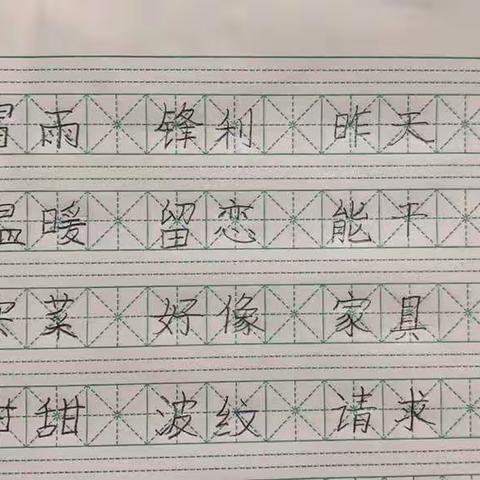 冒雨 锋利 昨天
温暖 留恋 能干
菜 好像 家具
甜 波纹 请求